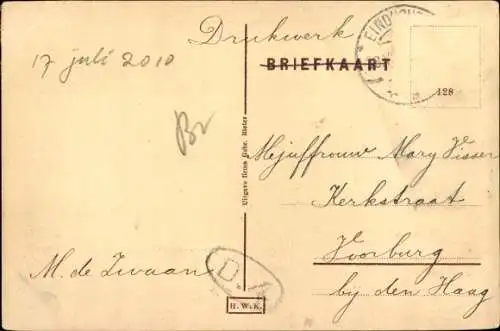 Drukwerk
17 juli 2010
BRIEFKAART
EINDHOV
128
Br
Uitgave firma Gebr. Rieter
Mejuffrouw Mary Visser
Kerkstraat
Voorburg
bij den Haag
M. de Zwaan
D.
H.v.K.